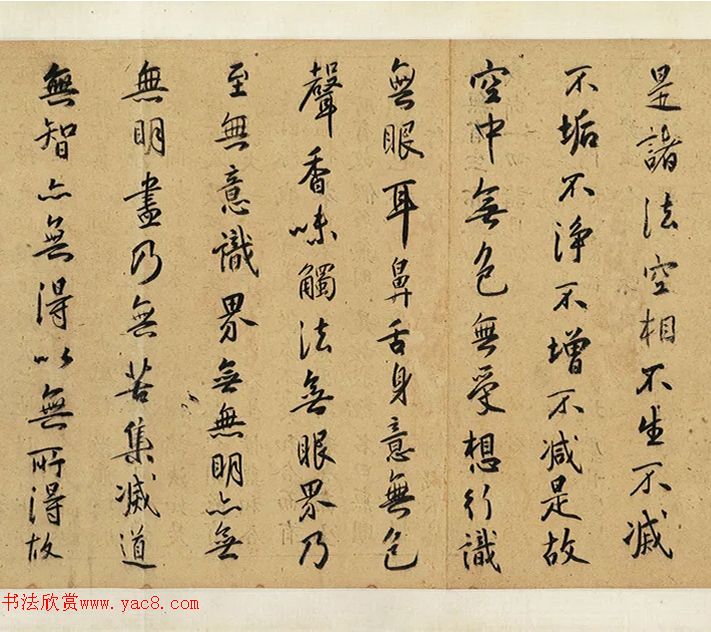 是諸法空相不生不滅
不垢不淨不增不減是故
空中無色無受想行識
無眼耳鼻舌身意無色
聲香味觸法無眼界乃
至無意識界無無明亦無
無明盡乃無苦集滅道
無智亦無得以無所得故
书法欣赏www.yac8.com